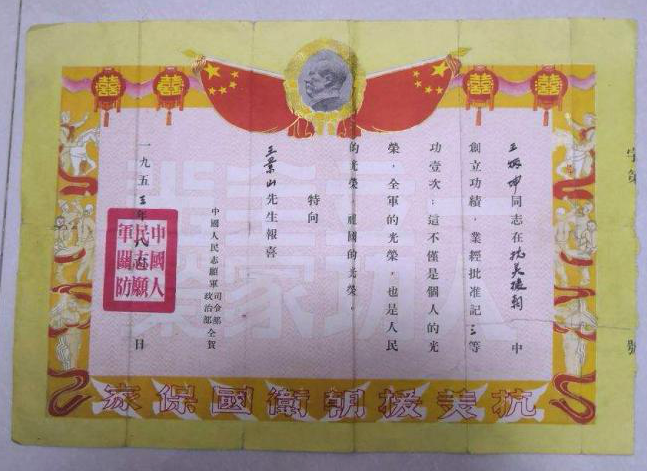 字第
號
王煥坤同志在抗美援朝中
創立功績，業經批准記三等
功壹次；這不僅是個人的光
榮，全軍的光榮，也是人民
的光榮，祖國的光榮。
特向
王業山先生報喜
中國人民志願軍
司令部
政治部
仝賀
一九五三年 月 日
中國人
民志願
軍關防
囍
囍
囍
囍
抗美援朝衛國保家